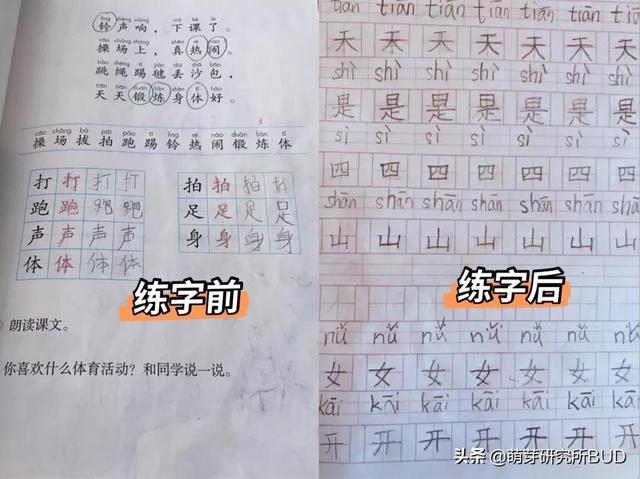 líng shēng xiǎng xià kè le
铃声响，下课了。
cāo chǎng shàng zhēn rè nao
操场上，真热闹。
tiào shéng tī jiàn diū shā bāo
跳绳踢毽丢沙包，
tiān tiān duàn liàn shēn tǐ hǎo
天天锻炼身体好。
cāo chǎng bá pāi pǎo tī líng rè nào duàn liàn tǐ
操场拔拍跑踢铃热闹锻炼体
打打打打 拍拍拍拍
跑跑跑跑 足足足足
声声声声 身身身身
体体体体
练字前
朗读课文。
你喜欢什么体育活动？和同学说一说。
tiān tiān tiān tiān tiān tiān tiān
天天天天天天天
shì shì shì shì shì shì shì
是是是是是是是
sì sì sì sì sì sì sì
四四四四四四四
shān shān shān shān shān shān shān
山山山山山山山
练字后
nǚ nǚ nǚ nǚ nǚ nǚ nǚ
女女女女女女女
kāi kāi kāi kāi kāi kāi kāi
开开开开开开开
头条 @萌芽研究所BUD